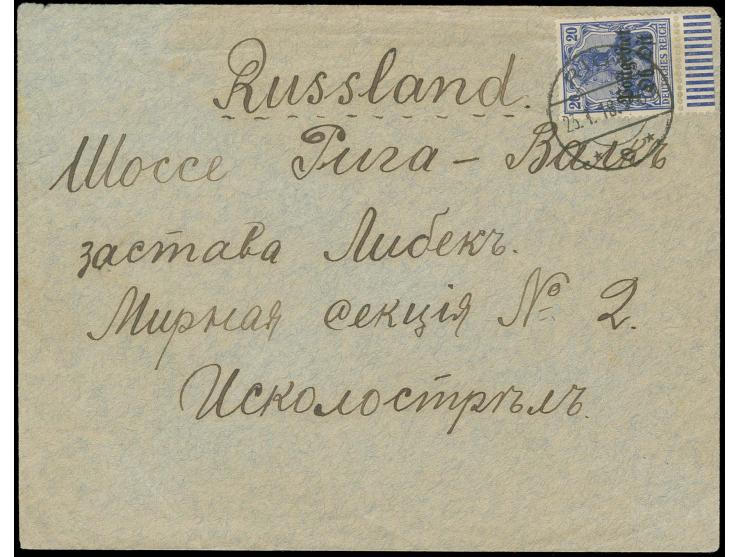 Russland.
Шоссе Рига – Валкъ
застава Либекъ.
Мирная секція № 2.
Исколострѣлъ.
20 DEUTSCHES REICH 20
Postgebiet Ob. Ost
25.1.18